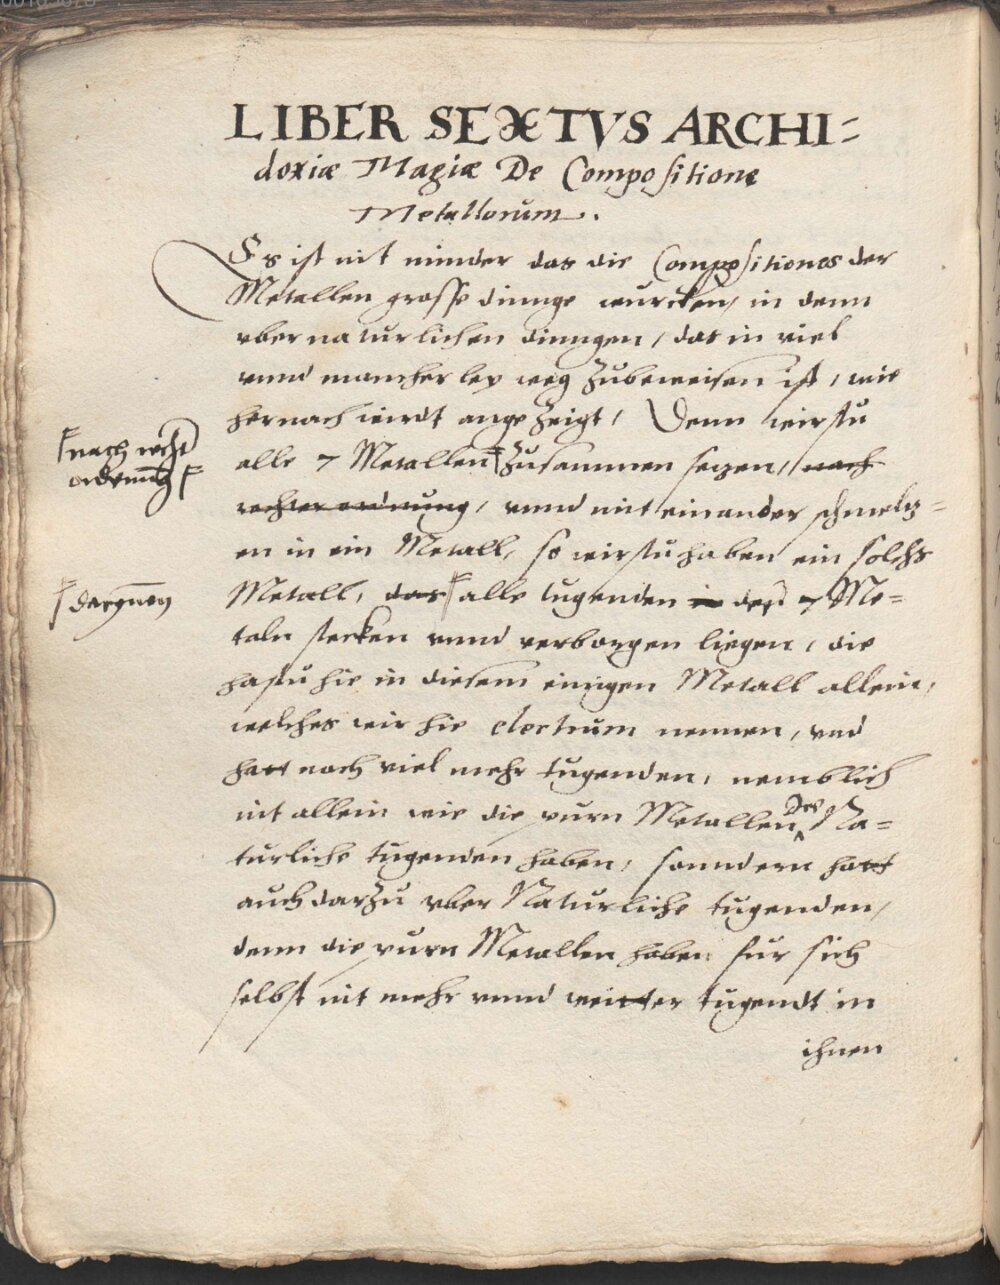 LIBER SEXTVS ARCHI=
doxiæ Magiæ De Compositione
Metallorum.
Es ist nit minder das die Compositiones der
Metallen grosse dinnge wurcken, in denn
vbernaturlichen dinngen, das in viel
vnnd mancherley weg Zubeweisen ist, wie
hernach wirdt angeZeigt, Denn wirstu
nach recht
ordenung
alle 7 Metallen Zusammen sezen, nach
rechter ordnung, vnnd mit einander schmeltz=
en in ein Metall, so wirstu haben ein solchs
Metall, das alle tugenden in den 7 Me=
taln stecken vnnd verborgen liegen, die
hastu hie in diesem einigen Metall allein,
welches wir hie electrum nennen, vnd
hatt noch viel mehr tugenden, nemblich
nit allein wie die purn Metallen Na=
turliche tugenden haben, sonndern hatt
auch darZu vber Naturliche tugenden,
denn die purn Metallen haben fur sich
selbst nit mehr vnnd weitter tugendt in
ihnen